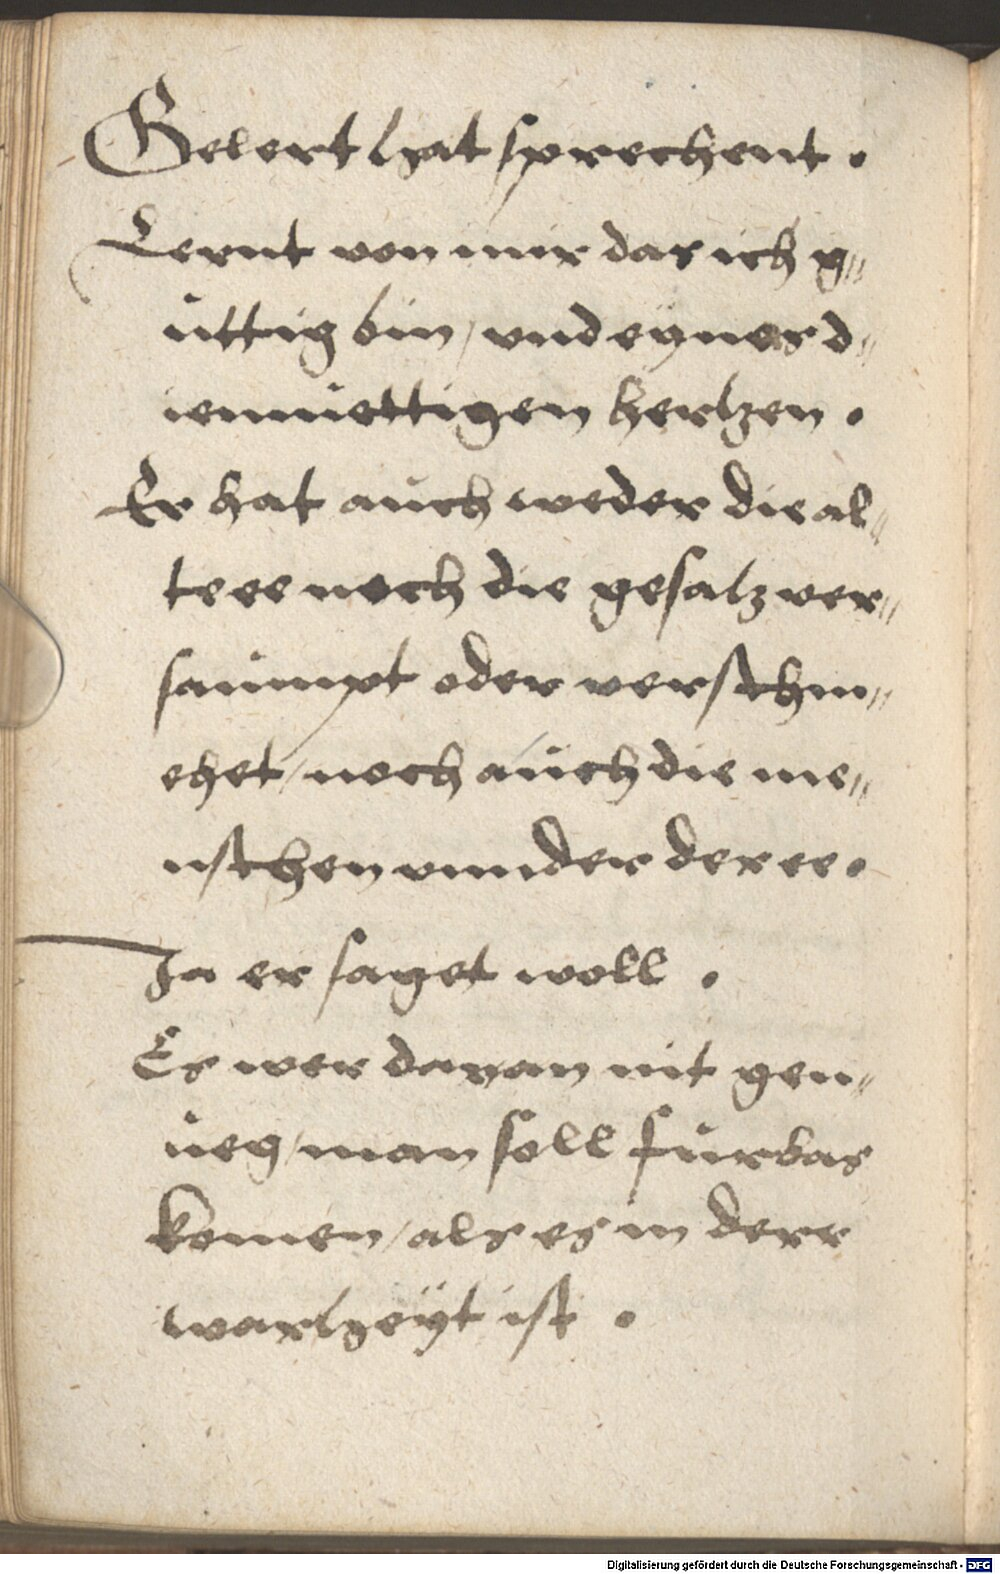 Gelert hat sprechent .
Lernt von mir das ich g„
uͤttig bin / vnd eynes d„
iemuettigen hertzen .
Er hat auch weder die al„
te ee noch die gesatz ver„
saumpt oder verschm„
ehet / noch auch die me„
nschen vnnder der ee .
Ja er saget woll .
Es wer daran nit gen„
ueg / man soll furbas
komen / als es in derr
warheyt ist .
Digitalisierung gefördert durch die Deutsche Forschungsgemeinschaft - DFG